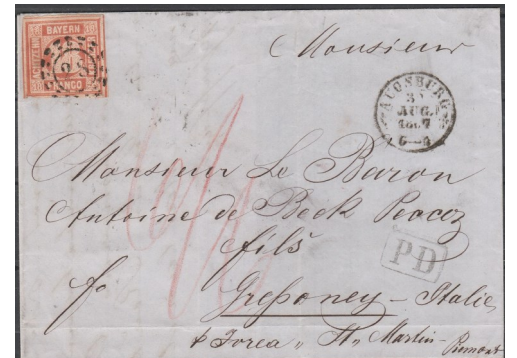 BAYERN
28
Monsieur
AUGSBURG
AUG.
Monsieur Le Baron
Antoine de Beck Peccoz
fils
PD
fo
Gressoney – Italie
p Ivrea „ St„ Martin – Piemont